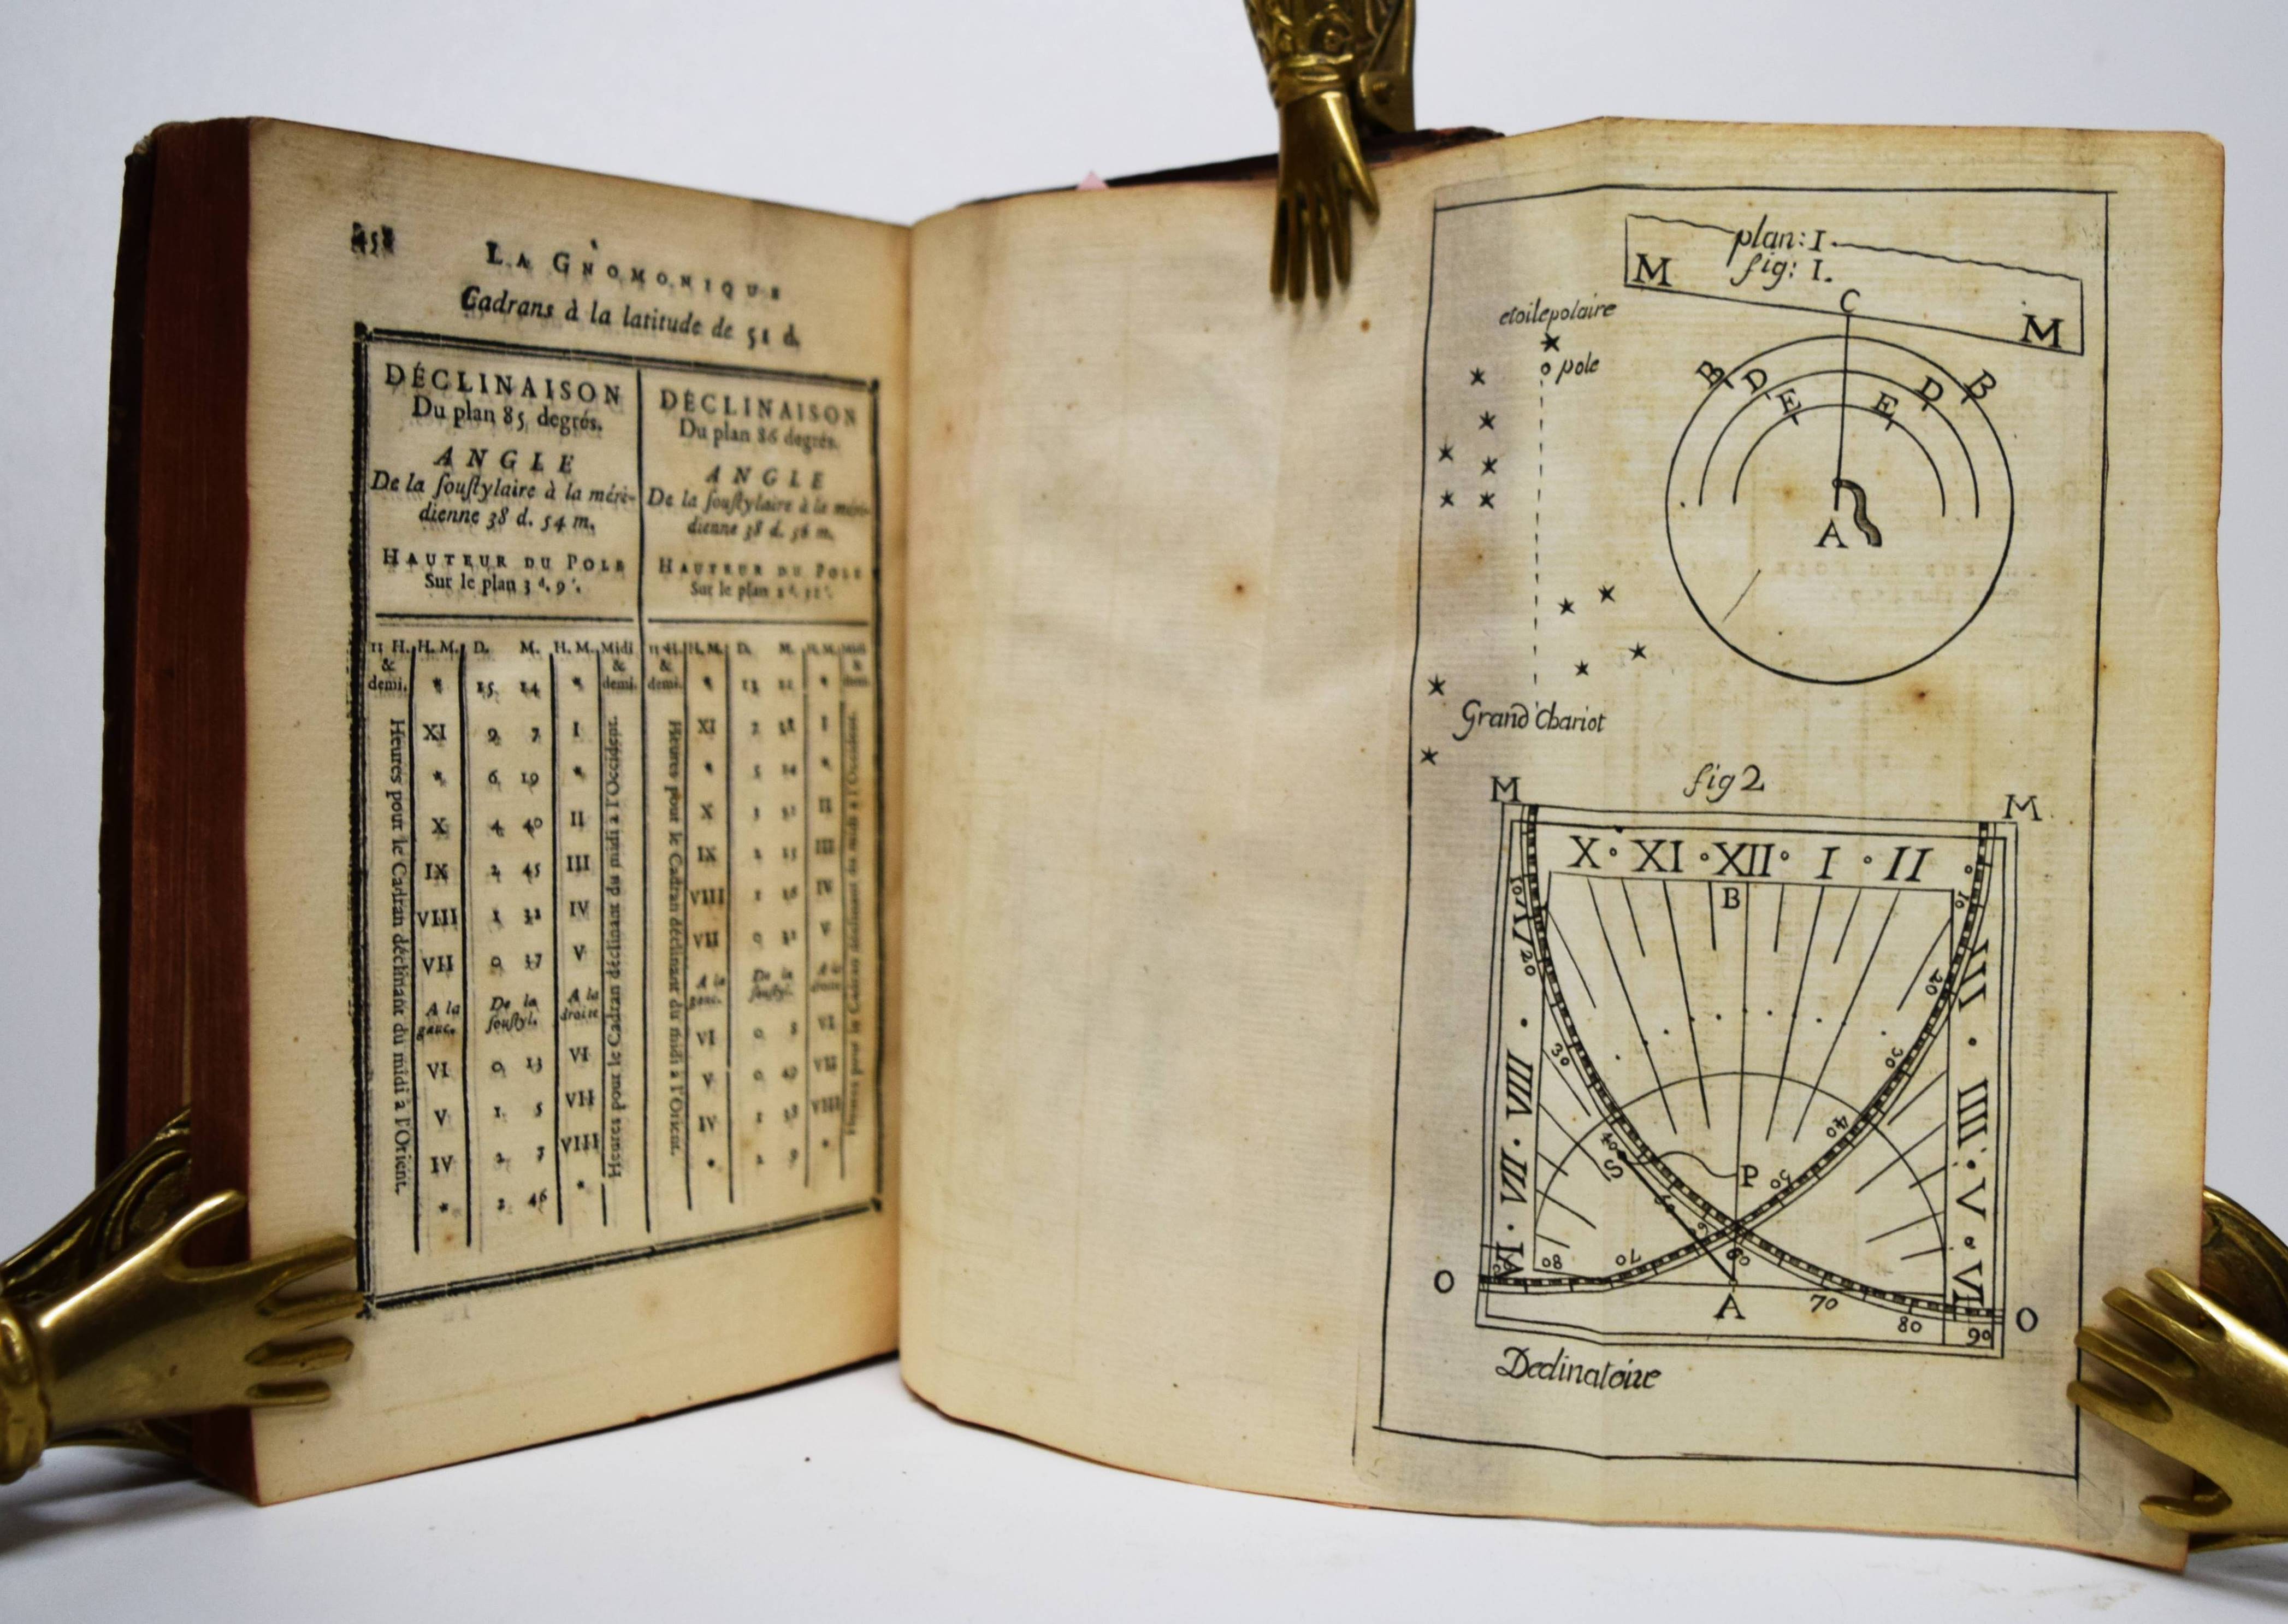 458
LA GNOMONIQUE
Cadrans à la latitude de 51 d.
DÉCLINAISON
Du plan 85 degrés.
ANGLE
De la ſouſtylaire à la méri-
dienne 38 d. 54 m.
HAUTEUR DU POLE
Sur le plan 3 d. 9'.
11 H. H. M. D. M. H. M. Midi
& &
demi. * 15 14 * demi.
XI 9 7 I
* 6 19 *
X 4 40 II
IX 2 45 III
VIII 1 32 IV
VII 0 37 V
A la De la A la
gauc. ſouſtyl. droite
VI 0 13 VI
V 1 5 VII
IV 2 3 VIII
* 2 46 *
Heures pour le Cadran déclinant du midi à l'Orient.
Heures pour le Cadran déclinant du midi à l'Occident.
DÉCLINAISON
Du plan 86 degrés.
ANGLE
De la ſouſtylaire à la méri-
dienne 38 d. 56 m.
HAUTEUR DU POLE
Sur le plan
11 H. H. M. D. M. H. M. Midi
& &
demi. * * demi.
XI I
* 5 *
X II
IX III
VIII IV
VII 0 V
A la De la A la
gauc. ſouſtyl. droite
VI 0 8 VI
V 0 VII
IV 1 VIII
* 2 9 *
Heures pour le Cadran déclinant du midi à l'Orient.
Heures pour le Cadran déclinant du midi à l'Occident.
plan: I.
fig: I.
M M
C
etoile polaire
pole
B D E E D B
A
Grand Chariot
fig 2
M M
X XI XII I II
B
10 10
20 20
30 30
40 40
S P 50
VI VII VIII
III IIII V VI
80 70 60
O A 70 80 90 O
Declinatoire